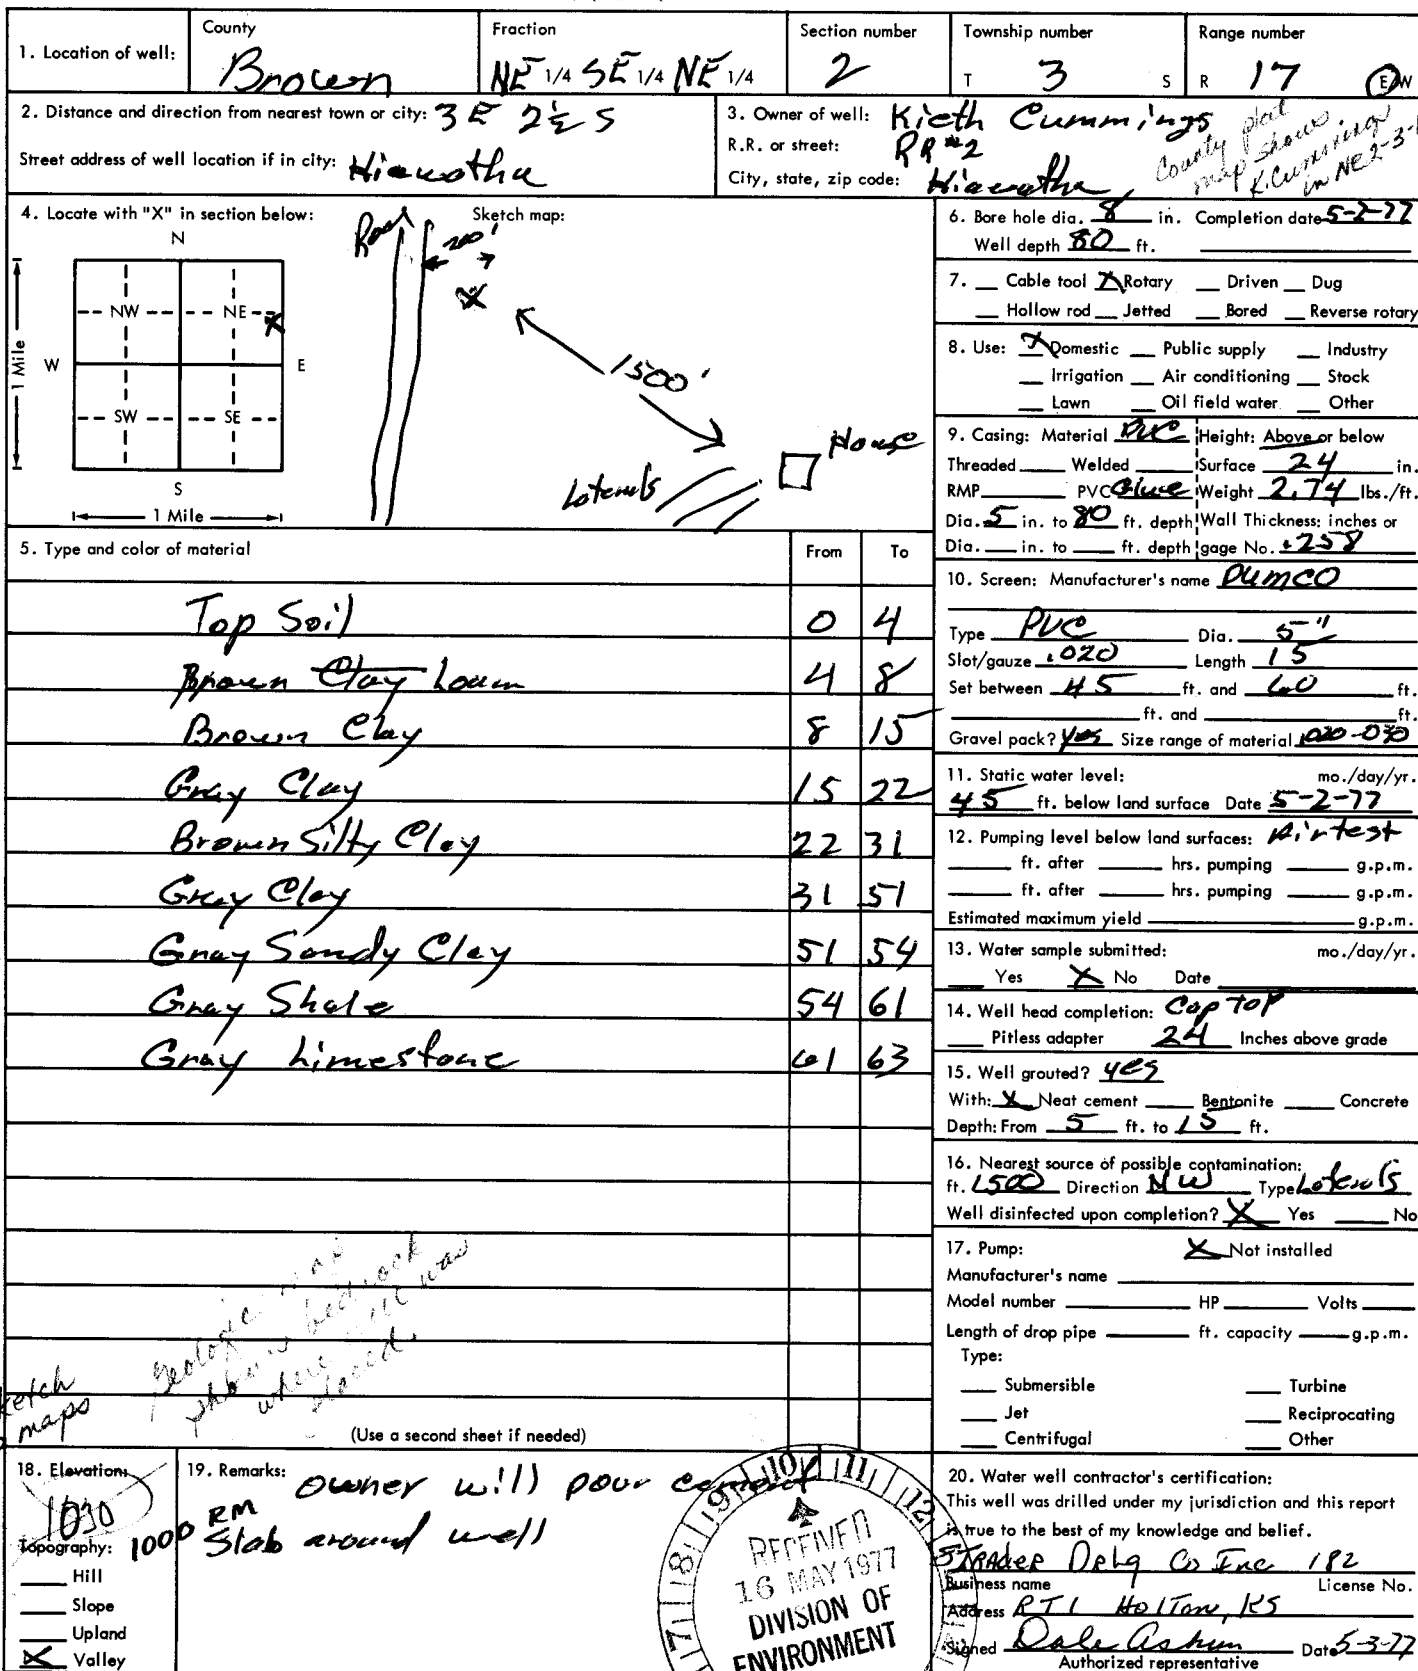 1. Location of well:
County
Brown
Fraction
NE 1/4 SE 1/4 NE 1/4
Section number
2
Township number
T 3 S
Range number
R 17 E/W
2. Distance and direction from nearest town or city: 3 E 2½ S
Street address of well location if in city: Hiawatha
3. Owner of well: Kieth Cummings
R.R. or street: RR #2
City, state, zip code: Hiawatha,
County plat
map shows
K. Cummings
in NE 2-3-
4. Locate with "X" in section below:
Sketch map:
N
NW NE
W E
SW SE
S
1 Mile
1 Mile
Road
200'
X
1500'
House
Laterals
5. Type and color of material From To
Top Soil 0 4
Brown Clay Loam 4 8
Brown Clay 8 15
Gray Clay 15 22
Brown Silty Clay 22 31
Gray Clay 31 51
Gray Sandy Clay 51 54
Gray Shale 54 61
Gray Limestone 61 63
geologic map
shows bedrock
where well was
placed.
ketch
maps
(Use a second sheet if needed)
6. Bore hole dia. 8 in. Completion date 5-2-77
Well depth 80 ft.
7. Cable tool X Rotary Driven Dug
Hollow rod Jetted Bored Reverse rotary
8. Use: X Domestic Public supply Industry
Irrigation Air conditioning Stock
Lawn Oil field water Other
9. Casing: Material PVC Height: Above or below
Threaded Welded Surface 24 in.
RMP PVC Glue Weight 2.74 lbs./ft.
Dia. 5 in. to 80 ft. depth Wall Thickness: inches or
Dia. in. to ft. depth gage No. .258
10. Screen: Manufacturer's name DUMCO
Type PVC Dia. 5"
Slot/gauze .020 Length 15
Set between 45 ft. and 60 ft.
ft. and ft.
Gravel pack? yes Size range of material .020-030
11. Static water level: mo./day/yr.
45 ft. below land surface Date 5-2-77
12. Pumping level below land surfaces: Airtest
ft. after hrs. pumping g.p.m.
ft. after hrs. pumping g.p.m.
Estimated maximum yield g.p.m.
13. Water sample submitted: mo./day/yr.
Yes X No Date
14. Well head completion: Cap TOP
Pitless adapter 24 Inches above grade
15. Well grouted? yes
With: X Neat cement Bentonite Concrete
Depth: From 5 ft. to 15 ft.
16. Nearest source of possible contamination:
ft. 1500 Direction NW Type Laterals
Well disinfected upon completion? X Yes No
17. Pump: X Not installed
Manufacturer's name
Model number HP Volts
Length of drop pipe ft. capacity g.p.m.
Type:
Submersible Turbine
Jet Reciprocating
Centrifugal Other
18. Elevation:
1030
1000 RM
Topography:
Hill
Slope
Upland
X Valley
19. Remarks: Owner will pour cement
Slab around well
7 8 9 10 11 12
RECEIVED
16 MAY 1977
DIVISION OF
ENVIRONMENT
20. Water well contractor's certification:
This well was drilled under my jurisdiction and this report
is true to the best of my knowledge and belief.
STRADER Drlg Co Inc 182
Business name License No.
Address RT1 HOlTon, KS
Signed Dale Ashen Date 5-3-77
Authorized representative